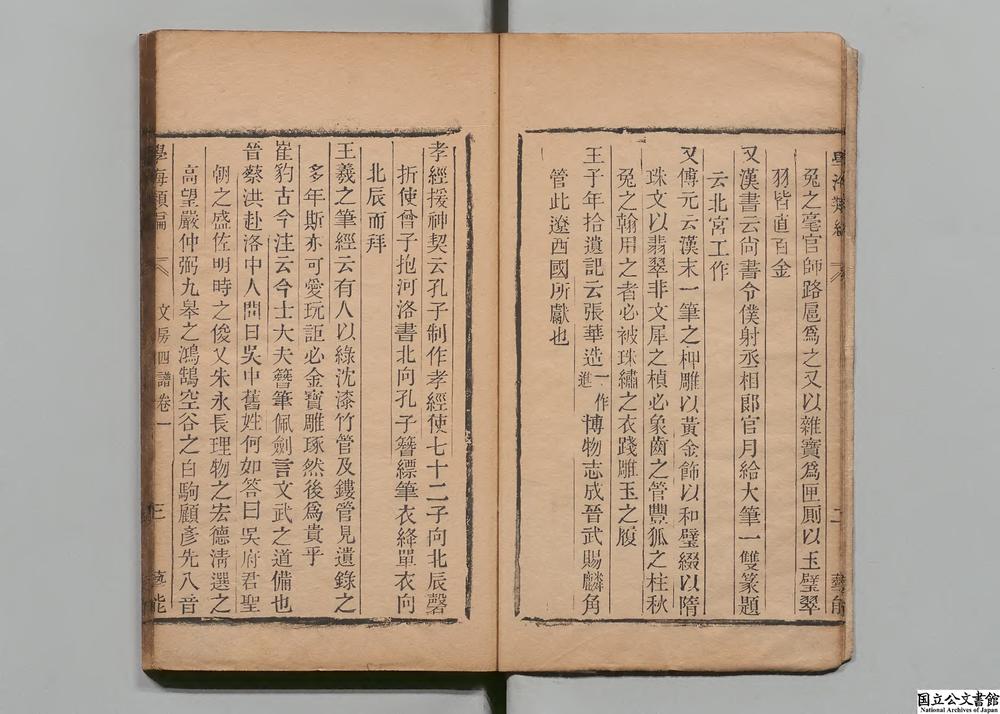 兔之毫官師路扈爲之又以雜寶爲匣厠以玉璧翠
羽皆直百金
又漢書云尙書令僕射丞相郎官月給大筆一雙篆題
云北宮工作
又傅元云漢末一筆之柙雕以黃金飾以和璧綴以隋
珠文以翡翠非文犀之楨必象齒之管豐狐之柱秋
兔之翰用之者必被珠繡之衣踐雕玉之履
王子年拾遺記云張華造一作進博物志成晉武賜麟角
管此遼西國所獻也
二
藝能
孝經援神契云孔子制作孝經使七十二子向北辰磬
折使曾子抱河洛書北向孔子簪縹筆衣絳單衣向
北辰而拜
王羲之筆經云有人以綠沈漆竹管及鏤管見遺錄之
多年斯亦可愛玩詎必金寶雕琢然後爲貴乎
崔豹古今注云今士大夫簪筆佩劍言文武之道備也
晉蔡洪赴洛中人問曰吳中舊姓何如答曰吳府君聖
朝之盛佐明時之俊乂朱永長理物之宏德淸選之
高望嚴仲弼九皋之鴻鵠空谷之白駒顧彥先八音
學海類編
文房四譜卷一
三
藝能
国立公文書館
National Archives of Japan